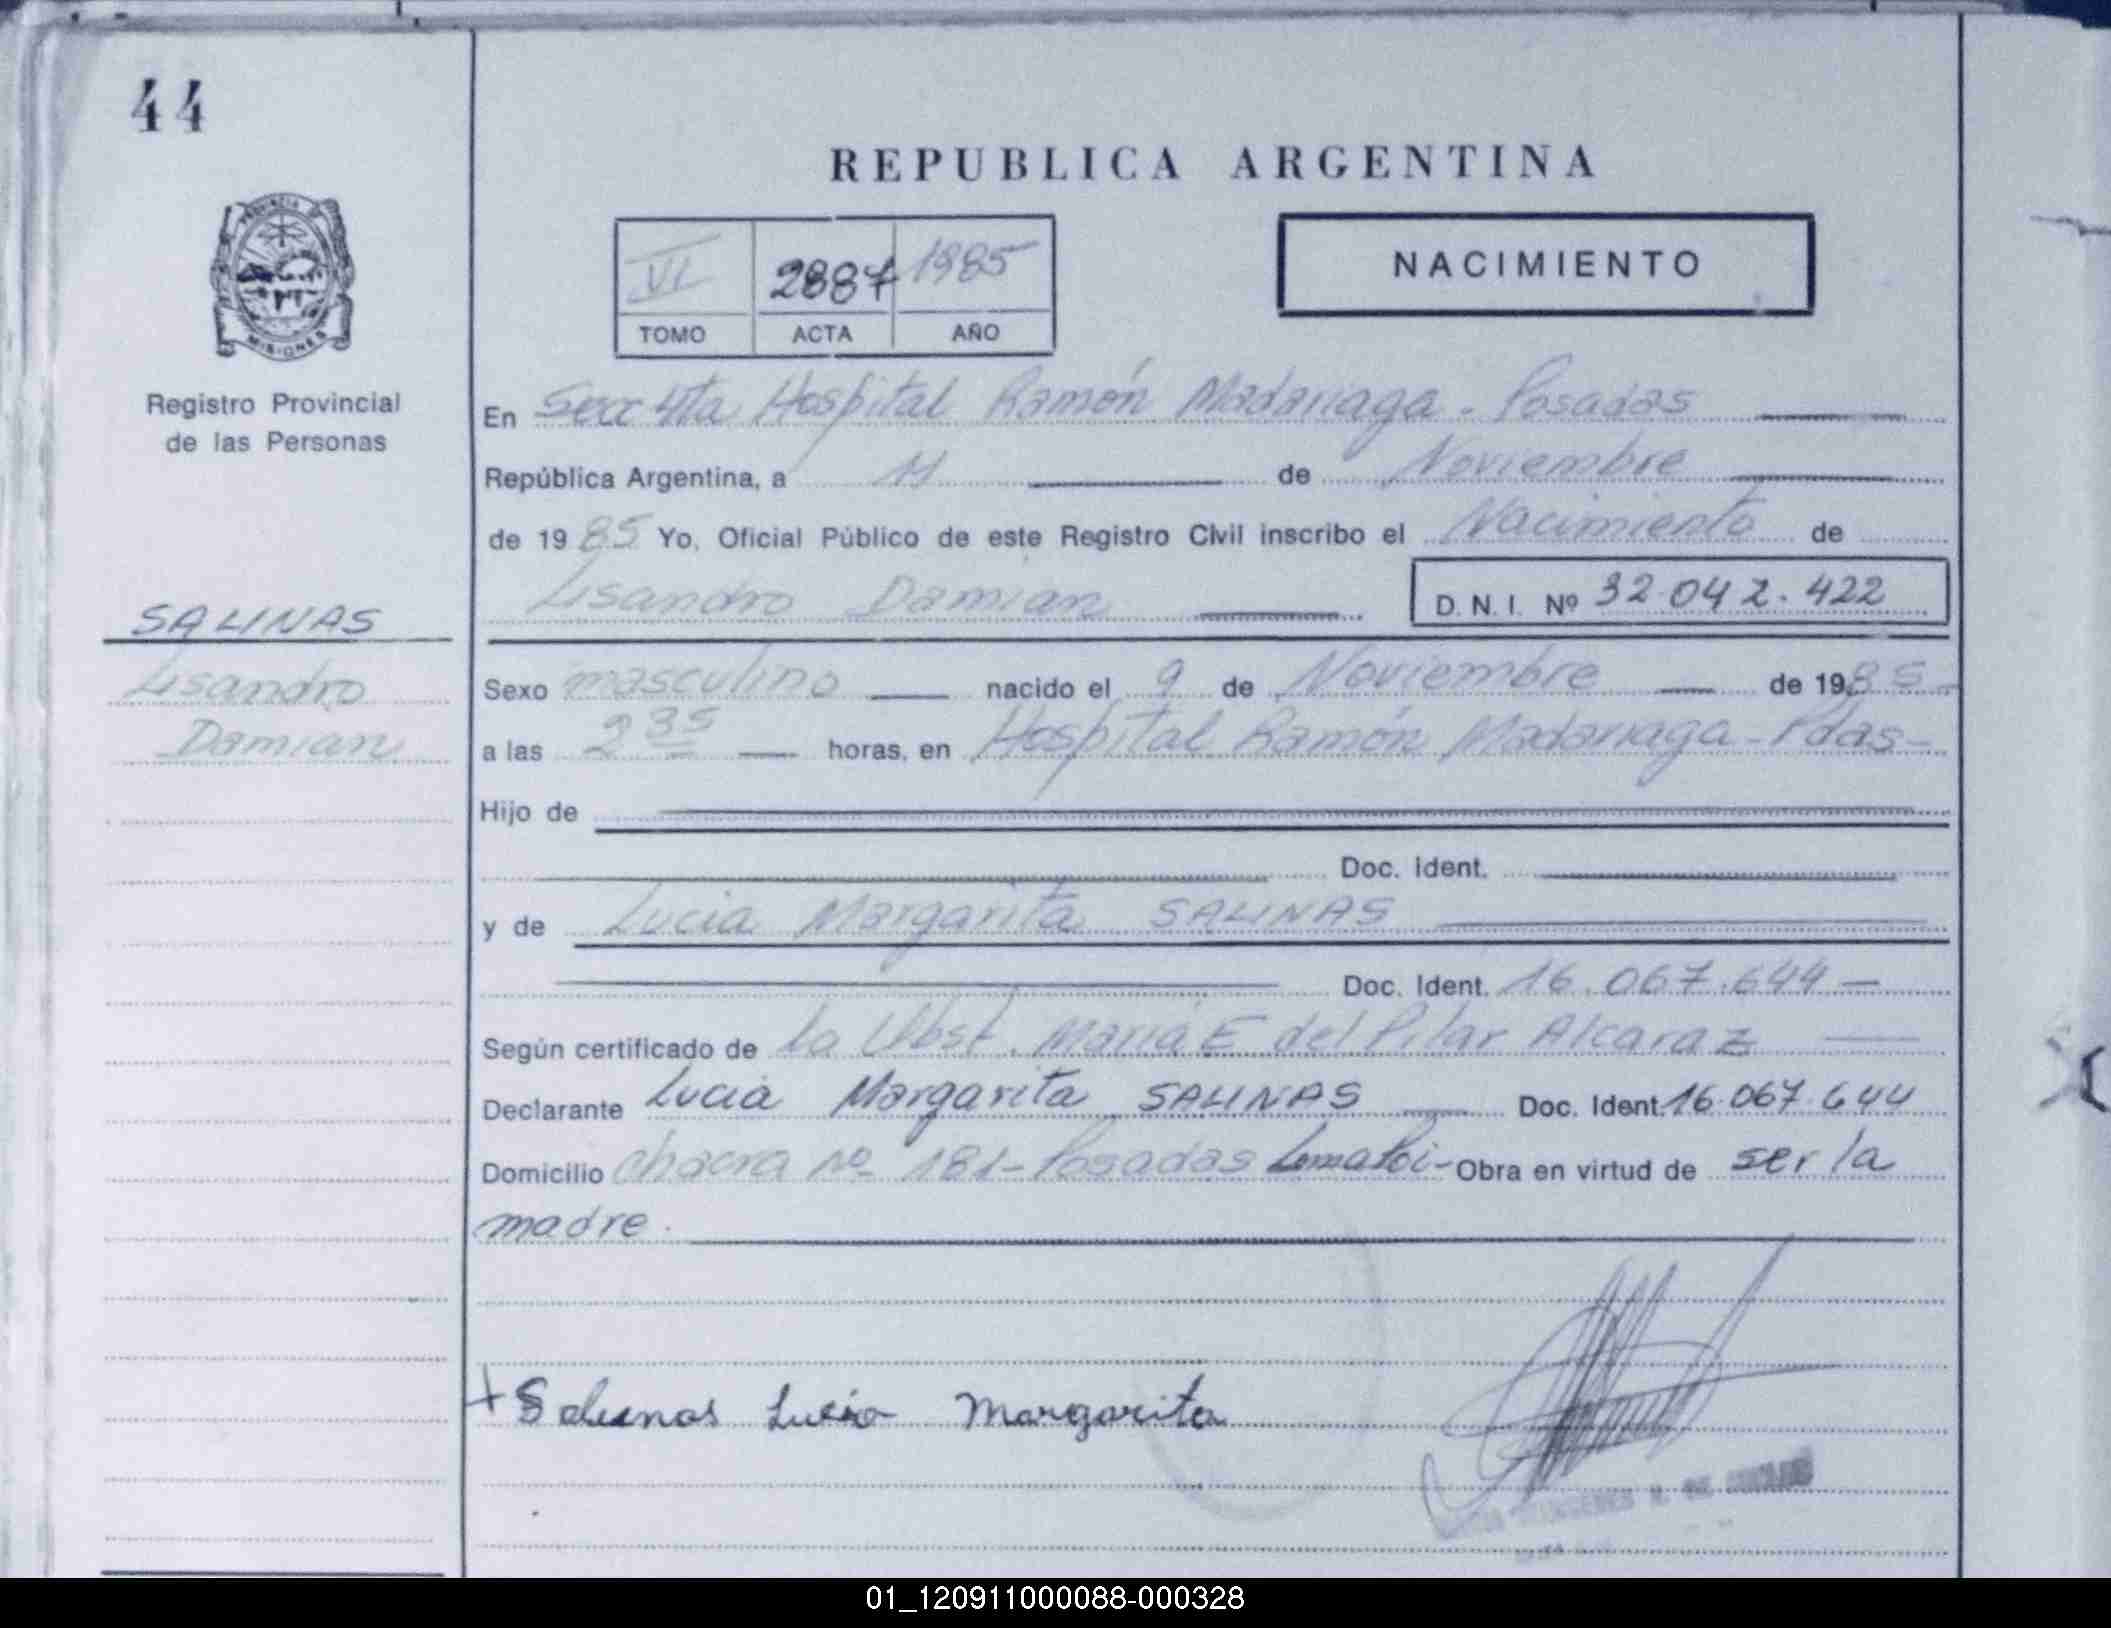 44
REPUBLICA ARGENTINA
VI 2887 1985
TOMO ACTA AÑO
NACIMIENTO
PROVINCIA D
MISIONES
Registro Provincial
de las Personas
En Secc 4ta Hospital Ramón Madariaga - Posadas
República Argentina, a 11 de Noviembre
de 1985 Yo, Oficial Público de este Registro Civil inscribo el Nacimiento de
Lisandro Damian D. N. I. Nº 32.042.422
SALINAS
Lisandro
Damian
Sexo masculino nacido el 9 de Noviembre de 1985-
a las 2 35 horas, en Hospital Ramón Madariaga - Pdas-
Hijo de
Doc. Ident.
y de Lucia Margarita SALINAS
Doc. Ident. 16.067.644 -
Según certificado de la Obst. Maria E del Pilar Alcaraz
Declarante Lucia Margarita SALINAS Doc. Ident. 16.067.644
Domicilio chacra nº 181 - Posadas Loma Poi - Obra en virtud de ser la
madre.
+ Salinas Lucia Margarita
01_120911000088-000328